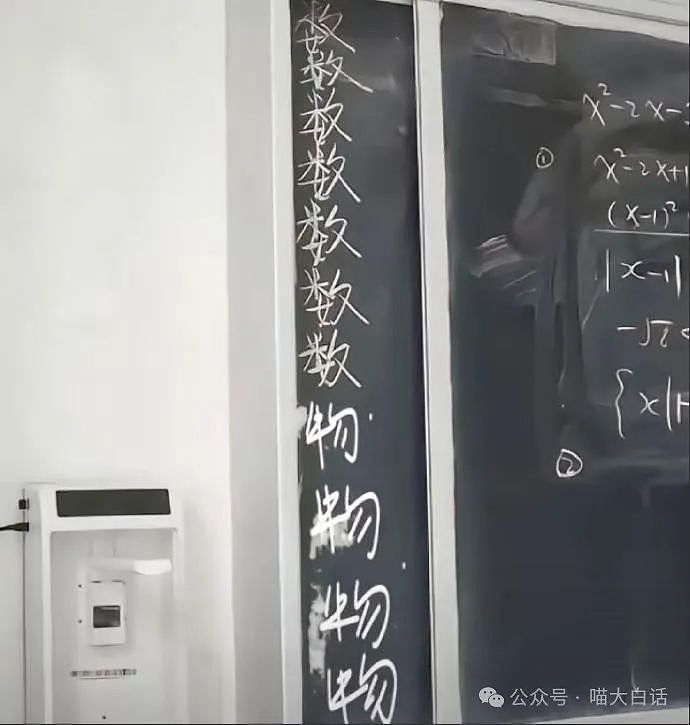 数
数
数
数
数
数
数
物
物
物
物
x²-2x-
①
x²-2x+1
(x-1)²
|x-1|
-√2<
{x|1-
②
公众号·喵大白话